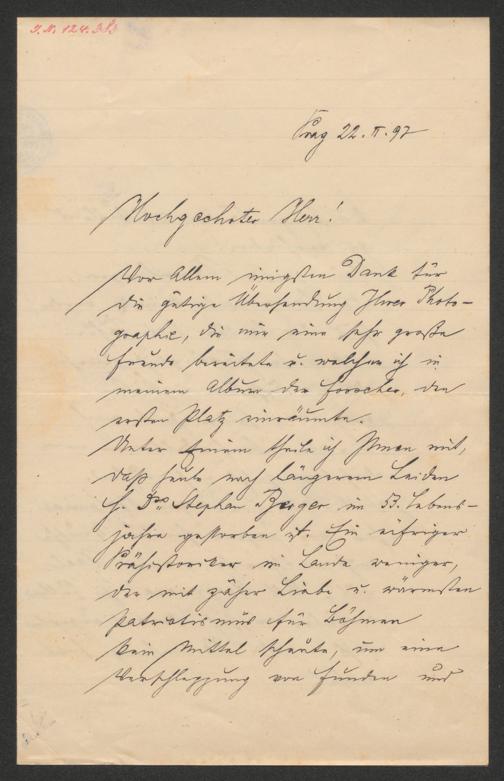 J. N. 124.383
Prag 22. II. 97
Hochgeehrter Herr!
Vor Allem innigsten Dank für
die gütige Übersendung Ihrer Photo-
graphie, die mir eine sehr große
Freude bereitete u. welcher ich in
meinem Album der Forscher, den
ersten Platz einräumte.
Unter Einem theile ich Ihnen mit,
daß heute nach längerem Leiden
H. Stephan Berger im 53. Lebens-
jahre gestorben ist. Ein eifriger
Prähistoriker im Lande weniger,
der mit zäher Liebe u. wärmsten
Patriotismus für Böhmen
kein Mittel scheute, um eine
Verschleppung von Funden und